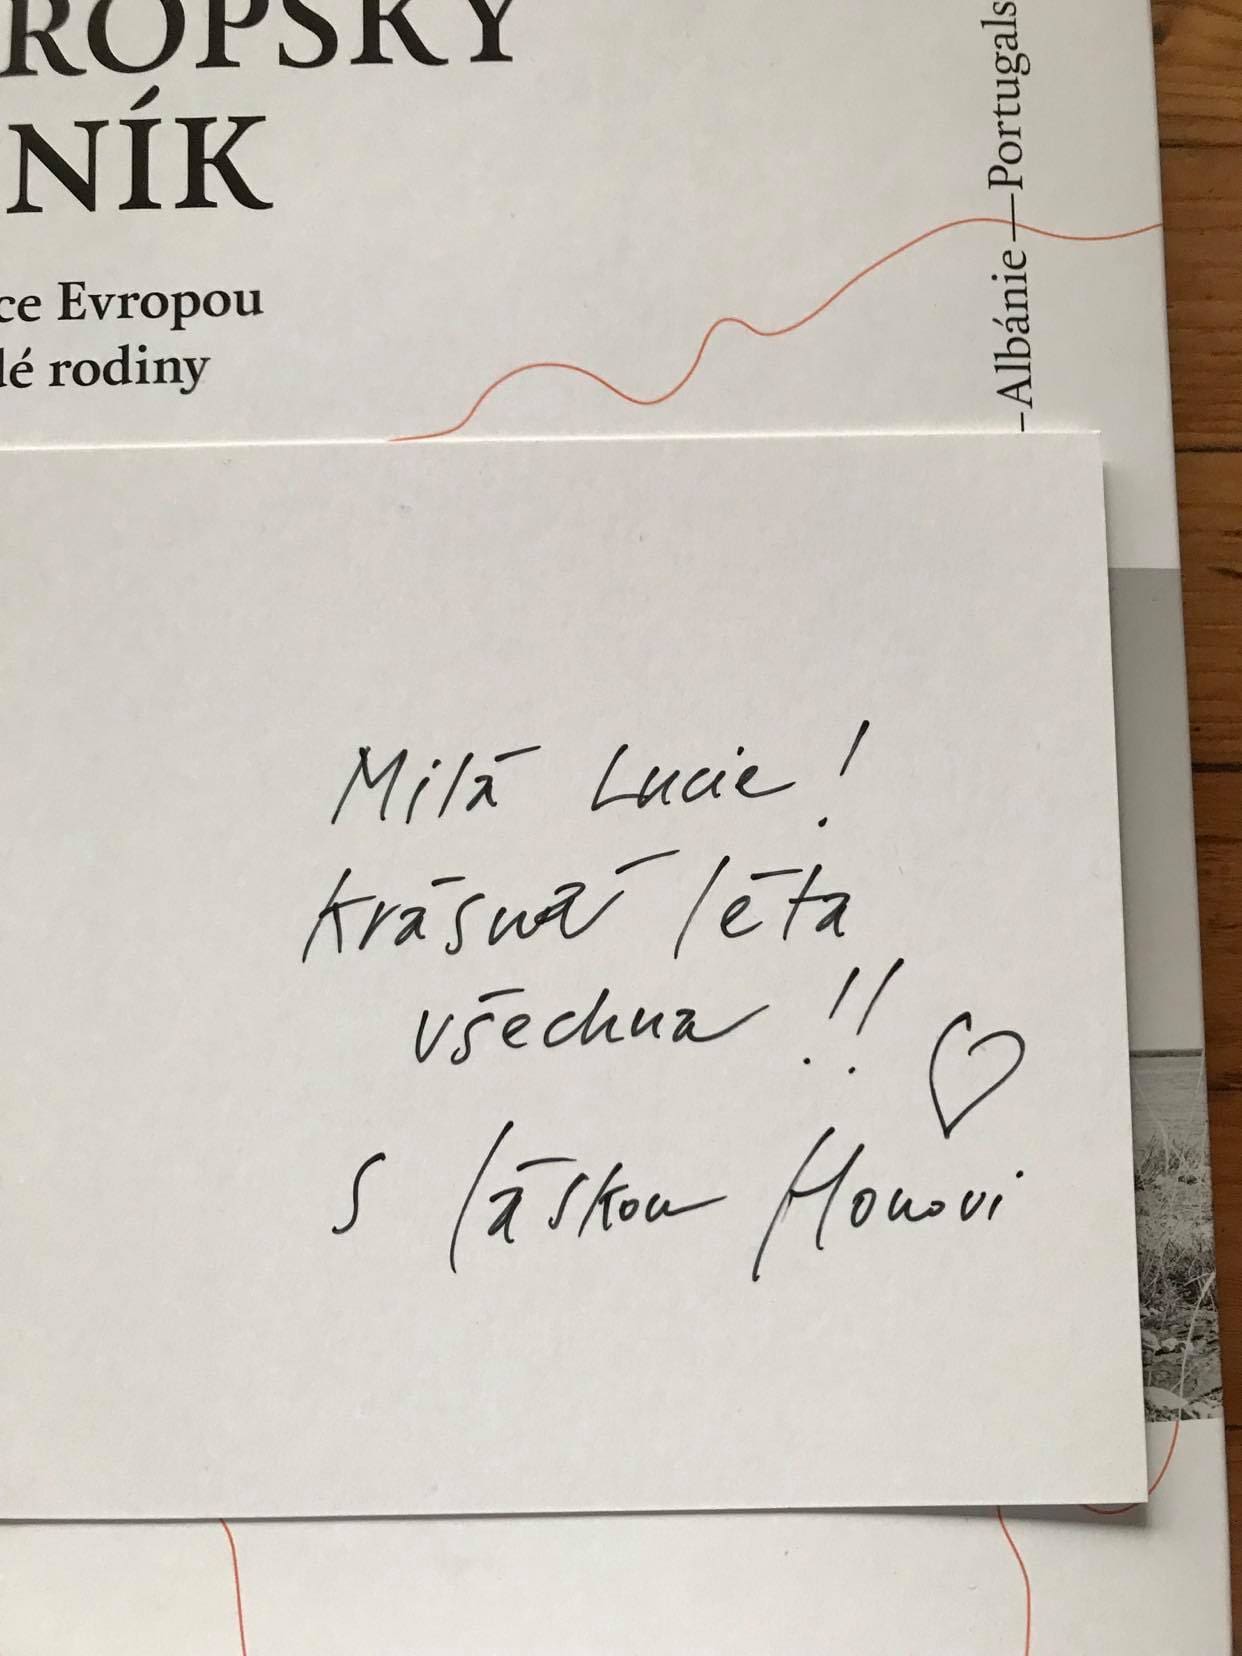 ROPSKÝ
NÍK
ce Evropou
lé rodiny
–Albánie—Portugals
Milá Lucie!
Krásná léta
všechna!!
S láskou Honovi